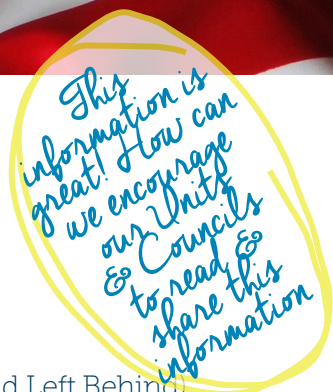 This
information is
great! How can
we encourage
our Units
& Councils
to read &
share this
information
d Left Behind)